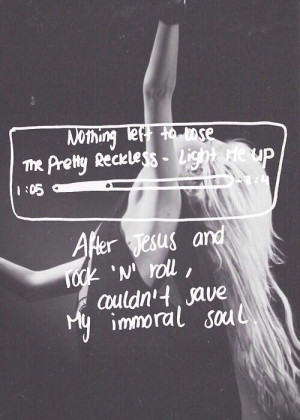 Nothing left to lose
The Pretty Reckless - Light Me up
1:05
After Jesus and
rock 'N' roll,
couldn't save
My immoral soul.